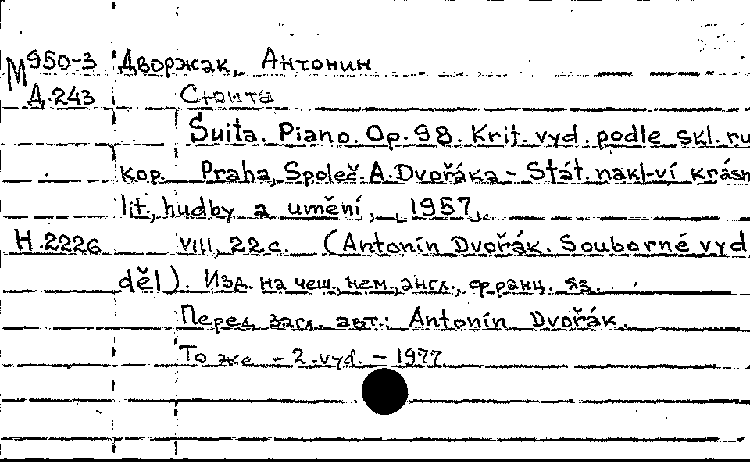 М950-3 Дворжак, Антонин
Д.243 Сюита
Suita. Piano. Op. 98. Krit. vyd. podle skl. ru
kop. Praha, Společ. A. Dvořáka - Stát. nakl-ví krásn
lit., hudby a umění, 1957.
Н.2226 VIII, 22 с. (Antonín Dvořák. Souborné vyd
děl). Изд. на чеш., нем., англ., франц. яз.
Перед загл. авт.: Antonín Dvořák.
То же - 2. vyd. - 1977